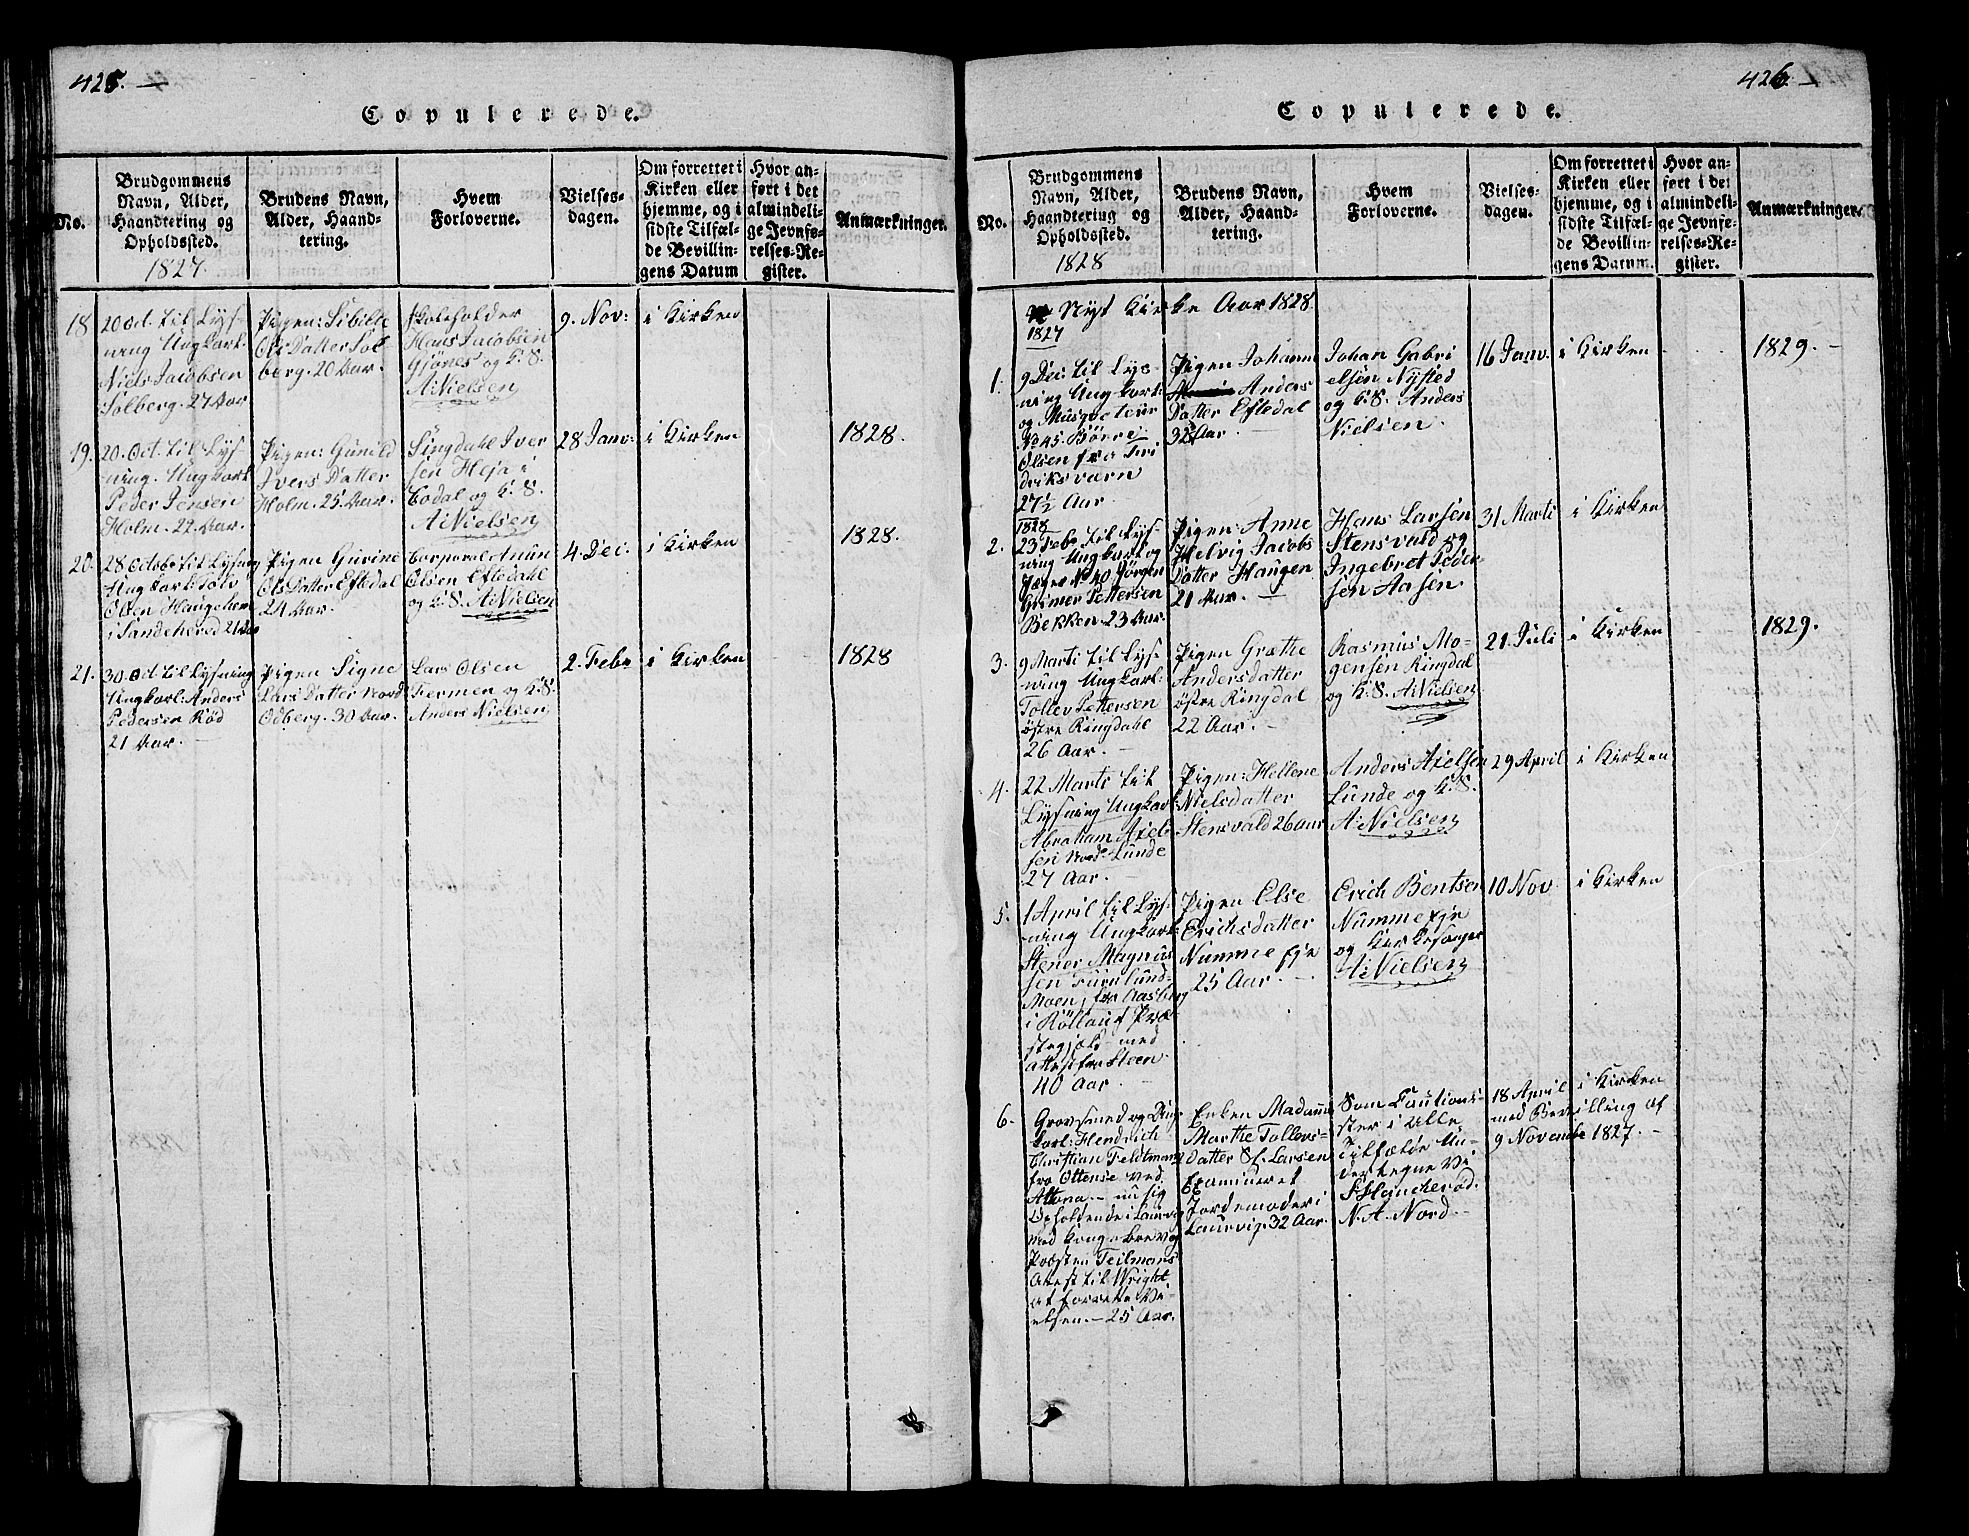 425. —
Copulerede.
No.
Brudgommens
Navn, Alder,
Haandtering og
Opholdssted.
1827.
Brudens Navn,
Alder, Haand-
tering.
Hvem
Forloverne.
Vielses-
dagen.
Om forrettet i
Kirken eller
hjemme, og i
sidste Tilfæl-
de Bevillin-
gens Datum
Hvor an-
ført i det
almindeli-
ge Jevnfø-
relses-Re-
gister.
Anmærkninger.
18
20 Oct. til Lys-
ning Ungkarl
Niels Jacobsen
Solberg. 27 Aar
Pigen: Sibille
Ols Datter Sol-
berg. 20 Aar.
Skoleholder
Hans Jacobsen
Gjönes og K. S.
A: Nielsen
9. Nov:
i Kirken
19.
20. Oct. til Lys-
ning. Ungkarl
Peder Jensen
Holm. 22. Aar.
Pigen: Gunild
Ivers Datter
Holm. 25 Aar.
Singdahl Iver
sen Heja i
Codal og K. S.
A: Nielsen
28 Janv:
i Kirken
1828.
20.
28 Octobr til Lysning
Ungkarl: Tolv
Olsen Haugehen
i Sandehered 21 Aar
Pigen Gurine
Ols Datter Eftedal
24 Aar.
Corporal Anun
Olsen Eftedahl
og K. S. A: Nielsen
4. Dec.
i Kirken
1828.
21.
30. Oct. til Lysning
Ungkarl: Anders
Pedersen Röd
21 Aar.
Pigen Signe
Lars Datter Nord
Odberg. 30 Aar.
Lars Olsen
Fermen og K. S.
Anders Nielsen
2. Febr
i Kirken
1828
426. —
Copulerede.
No.
Brudgommens
Navn, Alder,
Haandtering og
Opholdssted.
1828
Brudens Navn,
Alder, Haand-
tering.
Hvem
Forloverne.
Vielses-
dagen.
Om forrettet i
Kirken eller
hjemme, og i
sidste Tilfæl-
de Bevillin-
gens Datum.
Hvor an-
ført i det
almindeli-
ge Jevnfø-
relses-Re-
gister.
Anmærkninger.
Nyt Kirke Aar 1828.
1827
1.
9 Dec: til Lys-
ning Ungkarl:
og Musqveteur
No 45. Börre
Olsen fra Fri
driksværn
27½ Aar
Pigen Johanne
Anders
Datter Eftedal
32 Aar
Johan Gabri
elsen Nysted
og K. S. Anders
Nielsen.
16 Janv.
i Kirken
1829. —
1828
2.
23 Febr til Lys-
ning Ungkarl og
Jæger No 40 Jörgen
Grimer Pettersen
Bekken 23 Aar.
Pigen: Anne
Helvig Jacobs
Datter Haugen
21 Aar. —
Hans Larsen
Stensvald og
Ingebret Peder-
sen Aasen
31 Marti
i Kirken
3.
9 Marti til Lys-
ning Ungkarl:
Tollev Pettersen
östre Ringdahl
26 Aar. —
Pigen Græthe
Andersdatter
östre Ringdal
22 Aar. —
Rasmus Mo-
gensen Ringdal
og K. S. A: Nielsen
21 Juli
i Kirken
1829.
4.
22 Marti til
Lysning Ungkarl
Abraham Axel-
sen Nord-Lunde
27 Aar. —
Pigen: Hellene
Nielsdatter
Stensvald 26 Aar
Anders Axelsen
Lunde og K. S.
A: Nielsen
29 April
i Kirken
5.
1 April til Lys-
ning Ungkarl
Stener Magnus
sen Furulund-
Moen, fra Aasberg
i Röllaug Præ-
stegjeld med
attest fra Steen
40 Aar. —
Pigen Else
Erichsdatter
Numme eje
25 Aar. —
Erich Bentsen
Numme eje
og Kirkesanger
A: Nielsen
10 Nov.
i Kirken
6.
Grovsmed og Ung
karl: Hendrich
Christian Feldtmann
fra Ottense ved
Altona — nu sig
Opholdende i Laurvig
med Konge brev og
Provsten Teilmans
Attest til Wright
at forrette Vi-
elsen. — 25 Aar.
Enken Madame
Marthe Tollevs-
datter Sl. Larsen
Examineret
Jordemoder i
Laurvig. 32 Aar.
Som Cautionis-
ter i alle
Tilfælde Un-
dertegne Vi
S. Hancherød.
N. A. Nord.
18 April
i Kirken
med Bevilling af
9 Novembr 1827. —